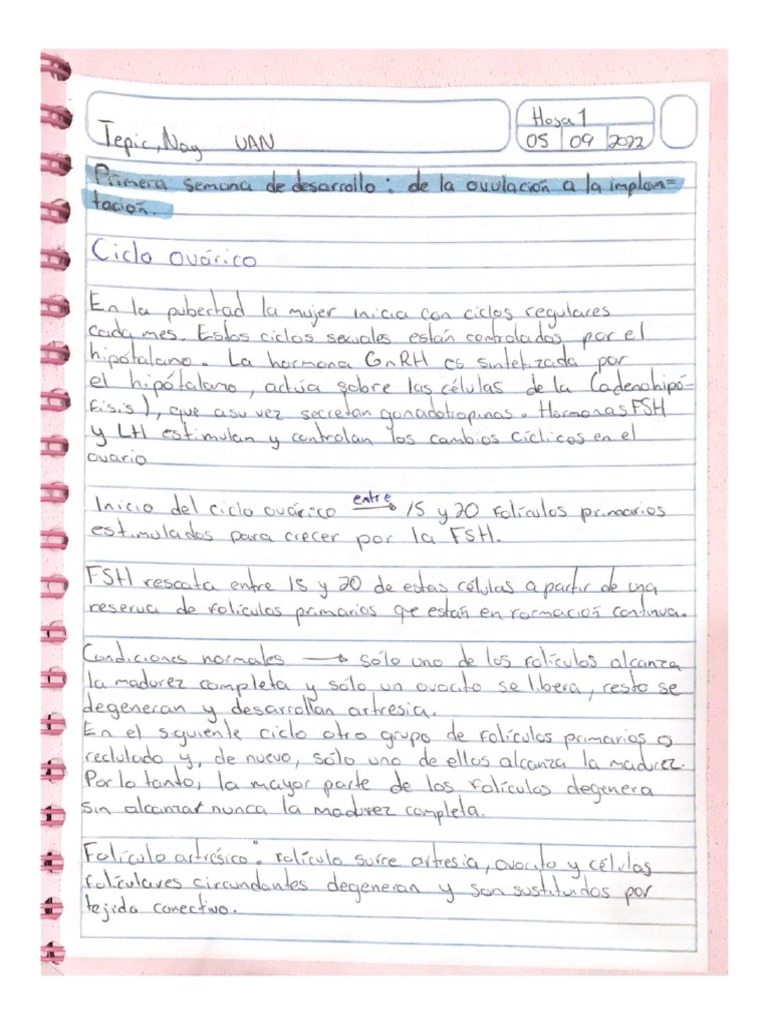 Hoja 1
Tepic, Nay UAN
05 09 2022
Primera semana de desarrollo: de la ovulación a la implan=
tación.
Ciclo ovárico
En la pubertad la mujer inicia con ciclos regulares
cada mes. Estos ciclos sexuales están controlados por el
hipótalano. La hormona GnRH es sintetizada por
el hipótalano, actúa sobre las células de la (adenohipó=
fisis), que asu vez secretan gonadotropinas. Hormonas FSH
y LH estimulan y controlan los cambios cíclicos en el
ovario
Inicio del ciclo ovárico entre → 15 y 20 folículos primarios
estimulados para crecer por la FSH.
FSH rescata entre 15 y 20 de estas células a partir de una
reserva de folículos primarios que están en formación continua.
Condiciones normales → sólo uno de los folículos alcanza
la madurez completa y sólo un ovocito se libera, resto se
degeneran y desarrollan artresia.
En el siguiente ciclo otro grupo de folículos primarios o
reclutado y, de nuevo, sólo uno de ellos alcanza la madurez.
Por lo tanto, la mayor parte de los folículos degenera
sin alcanzar nunca la madurez completa.
Folículo artrésico: folículo sufre artresia, ovocito y células
foliculares circundantes degeneran y son sustituidos por
tejido conectivo.